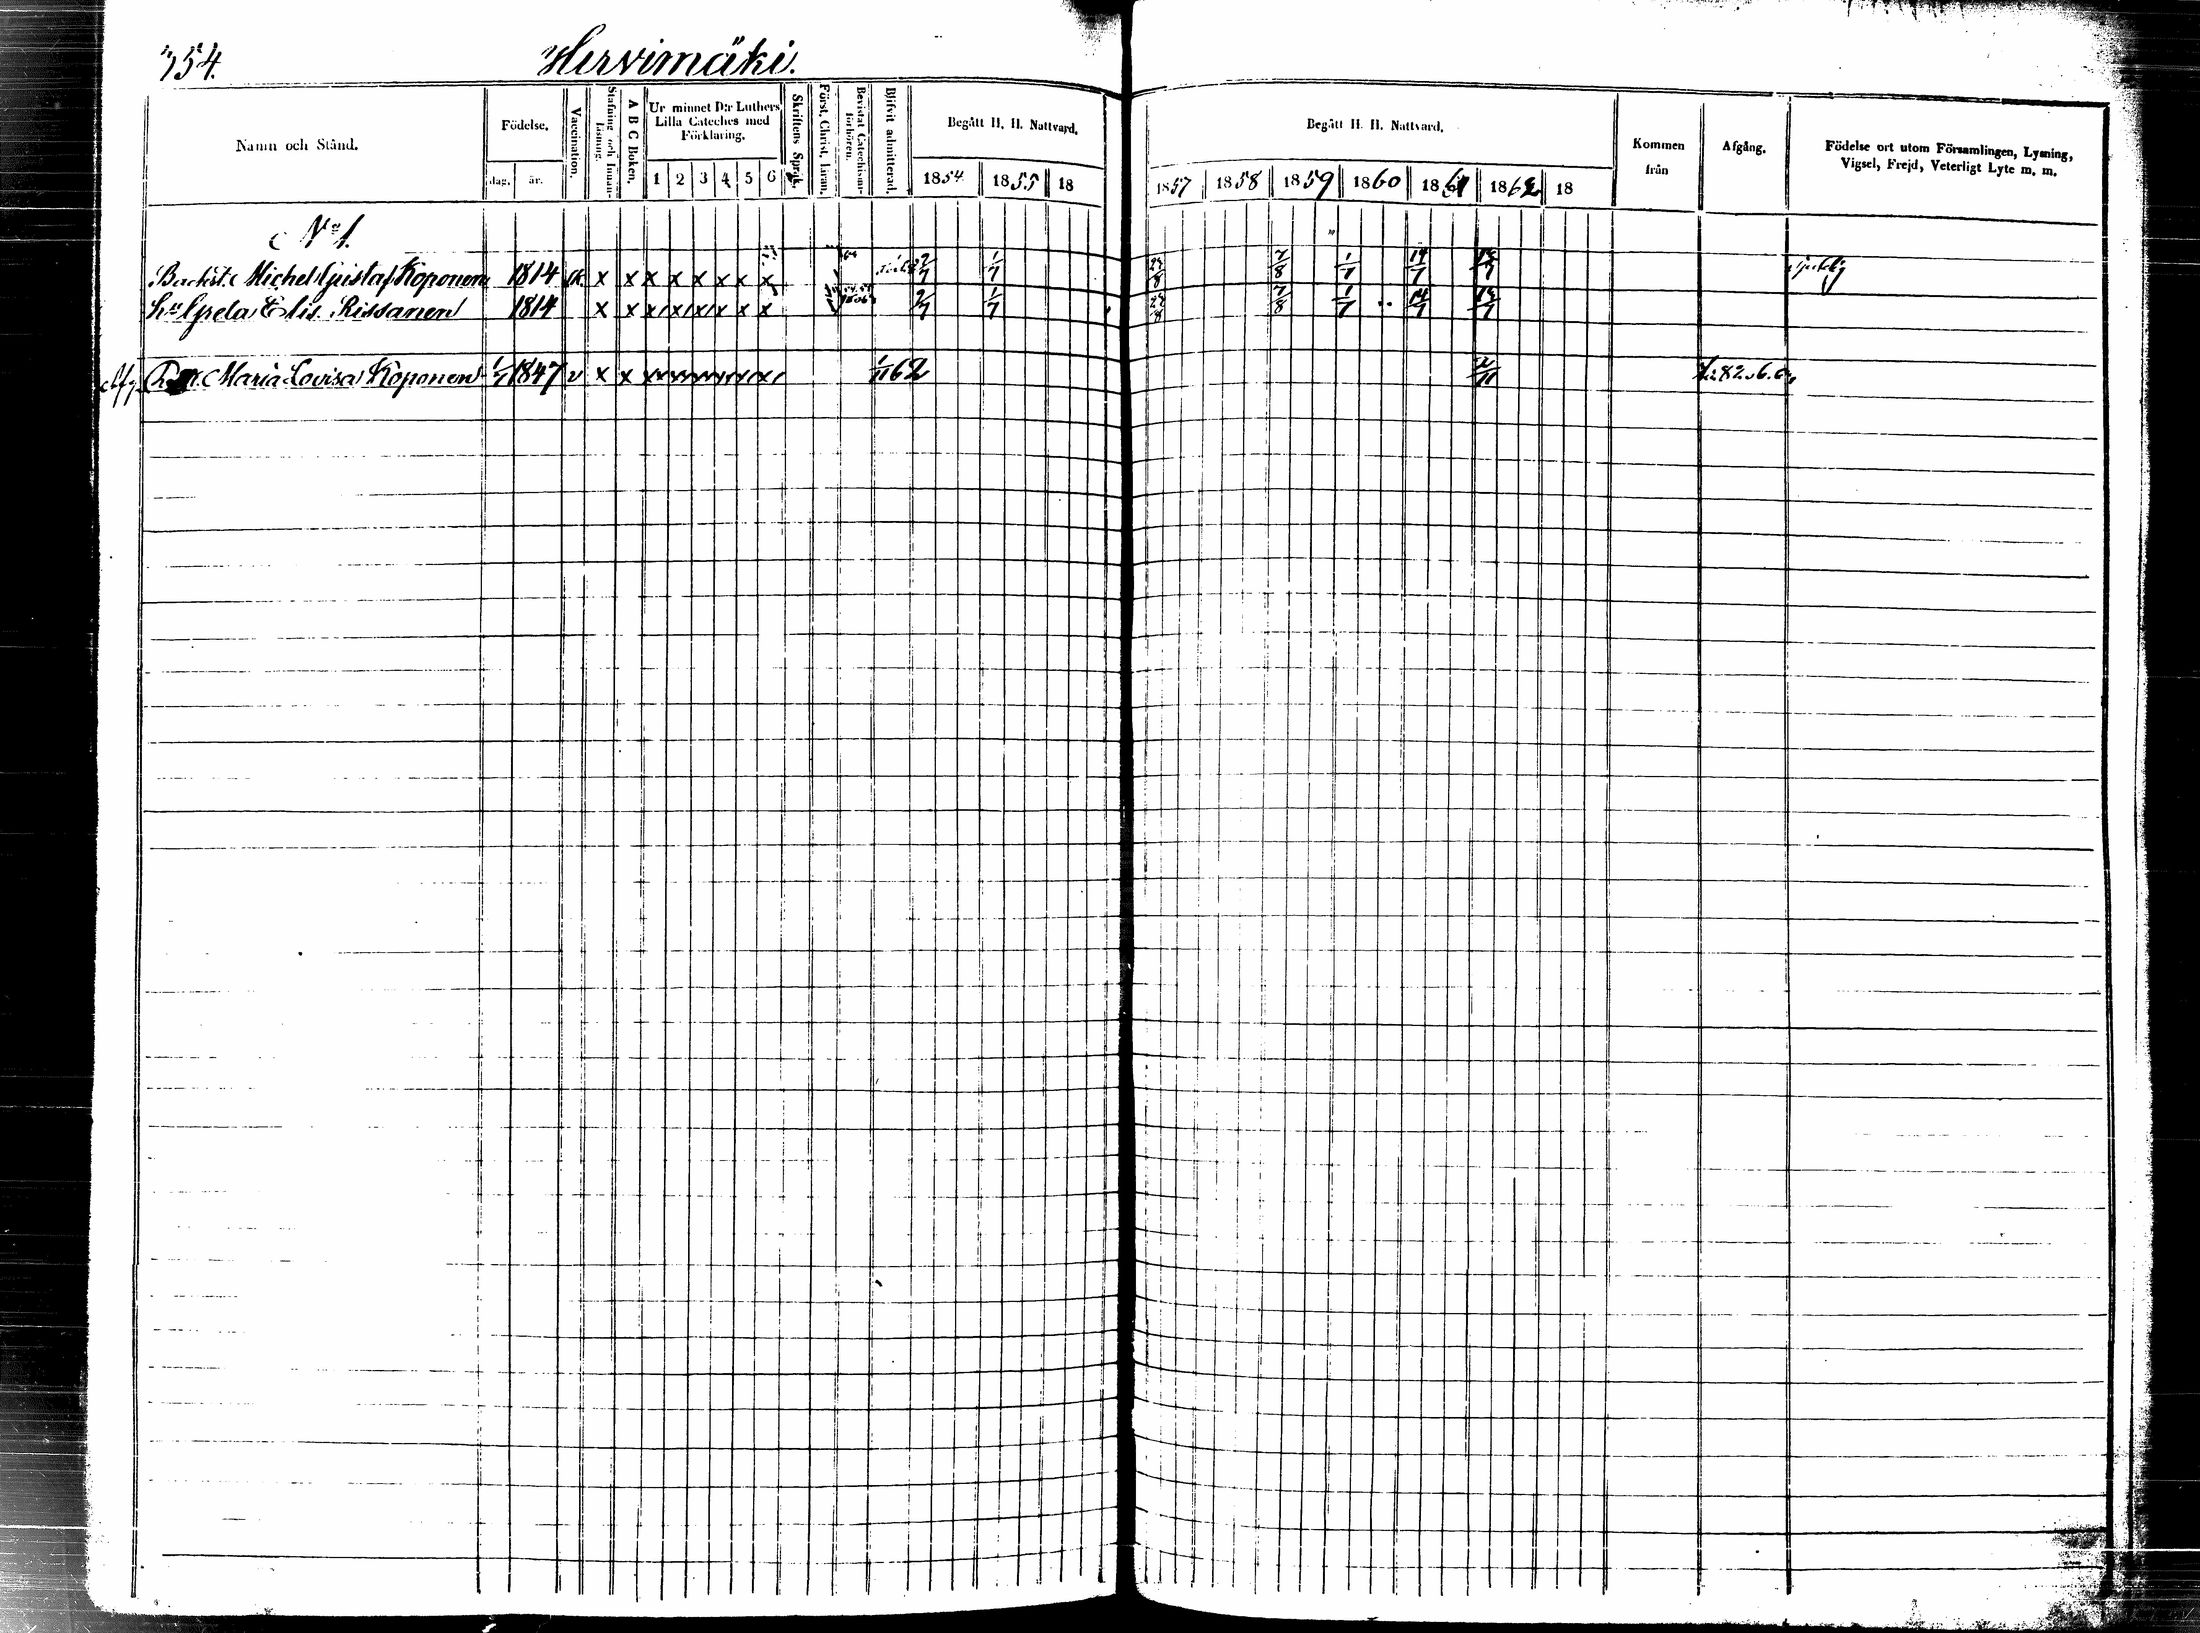 354.
Hirvimäki.
Namn och Stånd.
Födelse.
dag.
år.
Vaccination.
Stafning och Innanläsning.
A B C Boken.
Ur minnet D:r Luthers Lilla Cateches med Förklaring.
1 2 3 4 5 6
Skriftens Språk.
Först. Christ. Läran.
Bevistat Catechismi-förhören.
Blifvit admitterad.
Begått H. H. Nattvard.
1854 1855 18
Begått H. H. Nattvard.
1857 1858 1859 1860 1861 1862 18
Kommen från
Afgång.
Födelse ort utom Församlingen, Lysning, Vigsel, Frejd, Veterligt Lyte m. m.
No 1.
Backst. Michel Gustaf Koponen 1814 x x x x x x x x 2/7 1/7 7/8 1/7 14/7
Hu Greta Elis. Rissanen 1814 x x x x x x x x 2/7 1/7 7/8 1/7 14/7
Maria Lovisa Koponen 1847 v x x 1/11 62 2/11